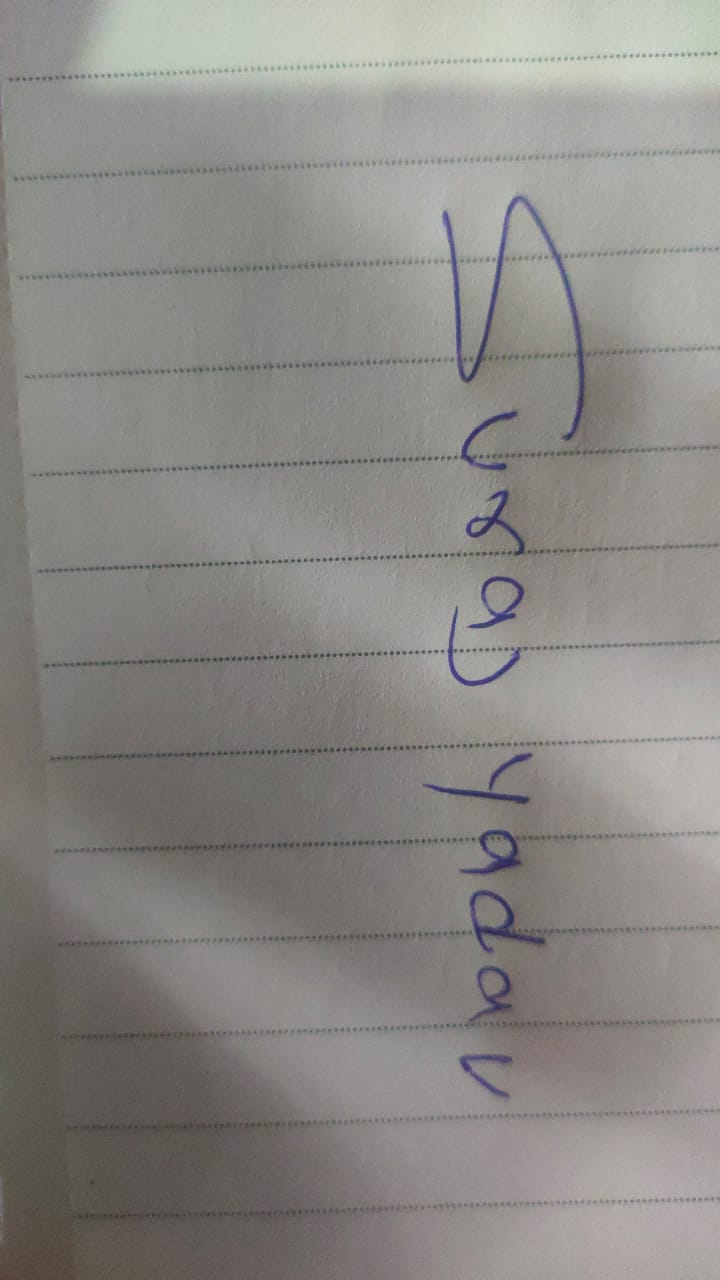 Suraj yadav